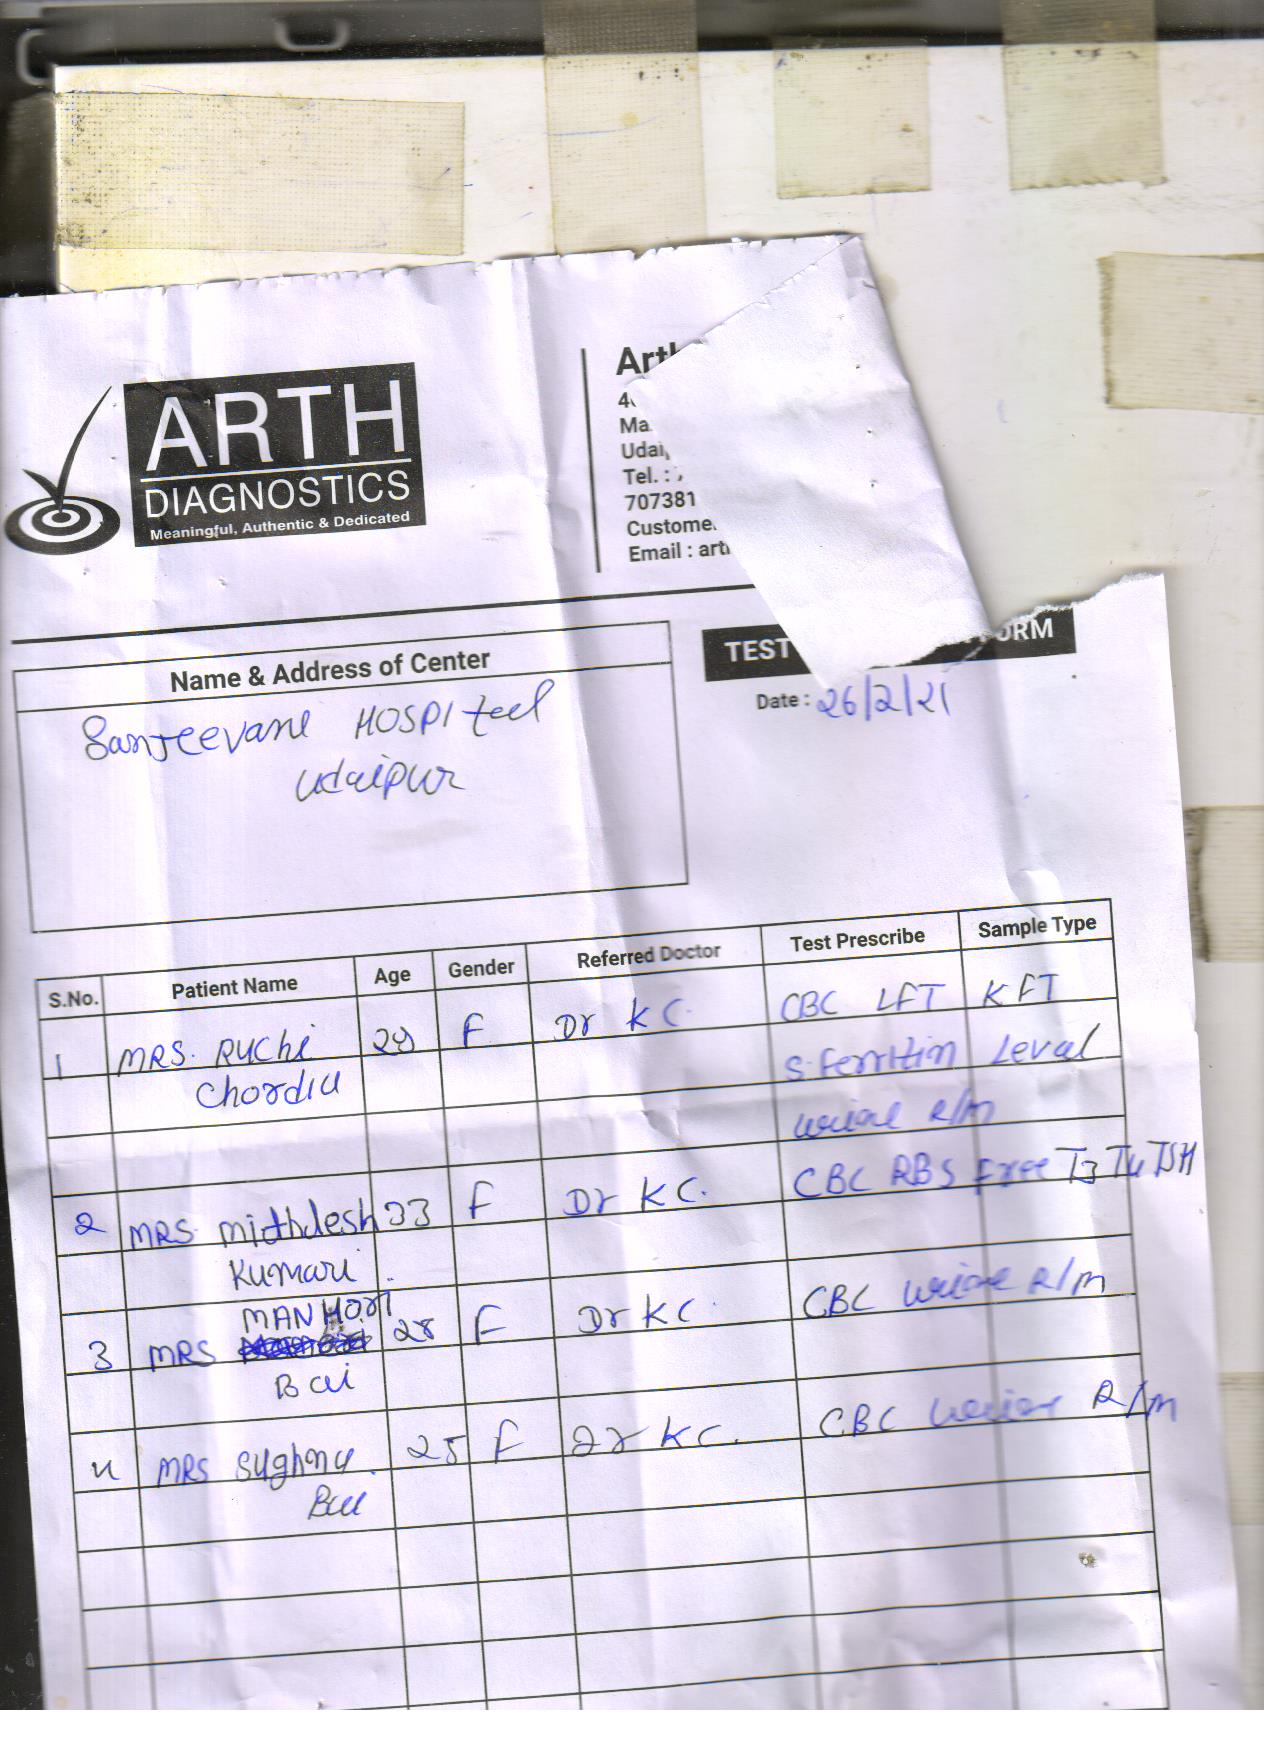 ARTH
DIAGNOSTICS
Meaningful, Authentic & Dedicated
Art
Ma
Udai
Tel. :
707381
Custome
Email : art
TEST FORM
Name & Address of Center
Date : 26/2/21
Sanjeevani HOSPIteel
Udaipur
S.No. Patient Name Age Gender Referred Doctor Test Prescribe Sample Type
1 MRS. RUCHI F Dr KC. CBC LFT KFT
Chordia S. Ferritin Leval
urine R/M
2 MRS mithlesh 33 F Dr KC. CBC RBS free T3 T4 TSH
Kumari
MANHOR
3 MRS 28 F Dr KC CBC urine R/M
Bai
4 MRS sughna 25 F Dr KC. CBC urine R/M
Bai